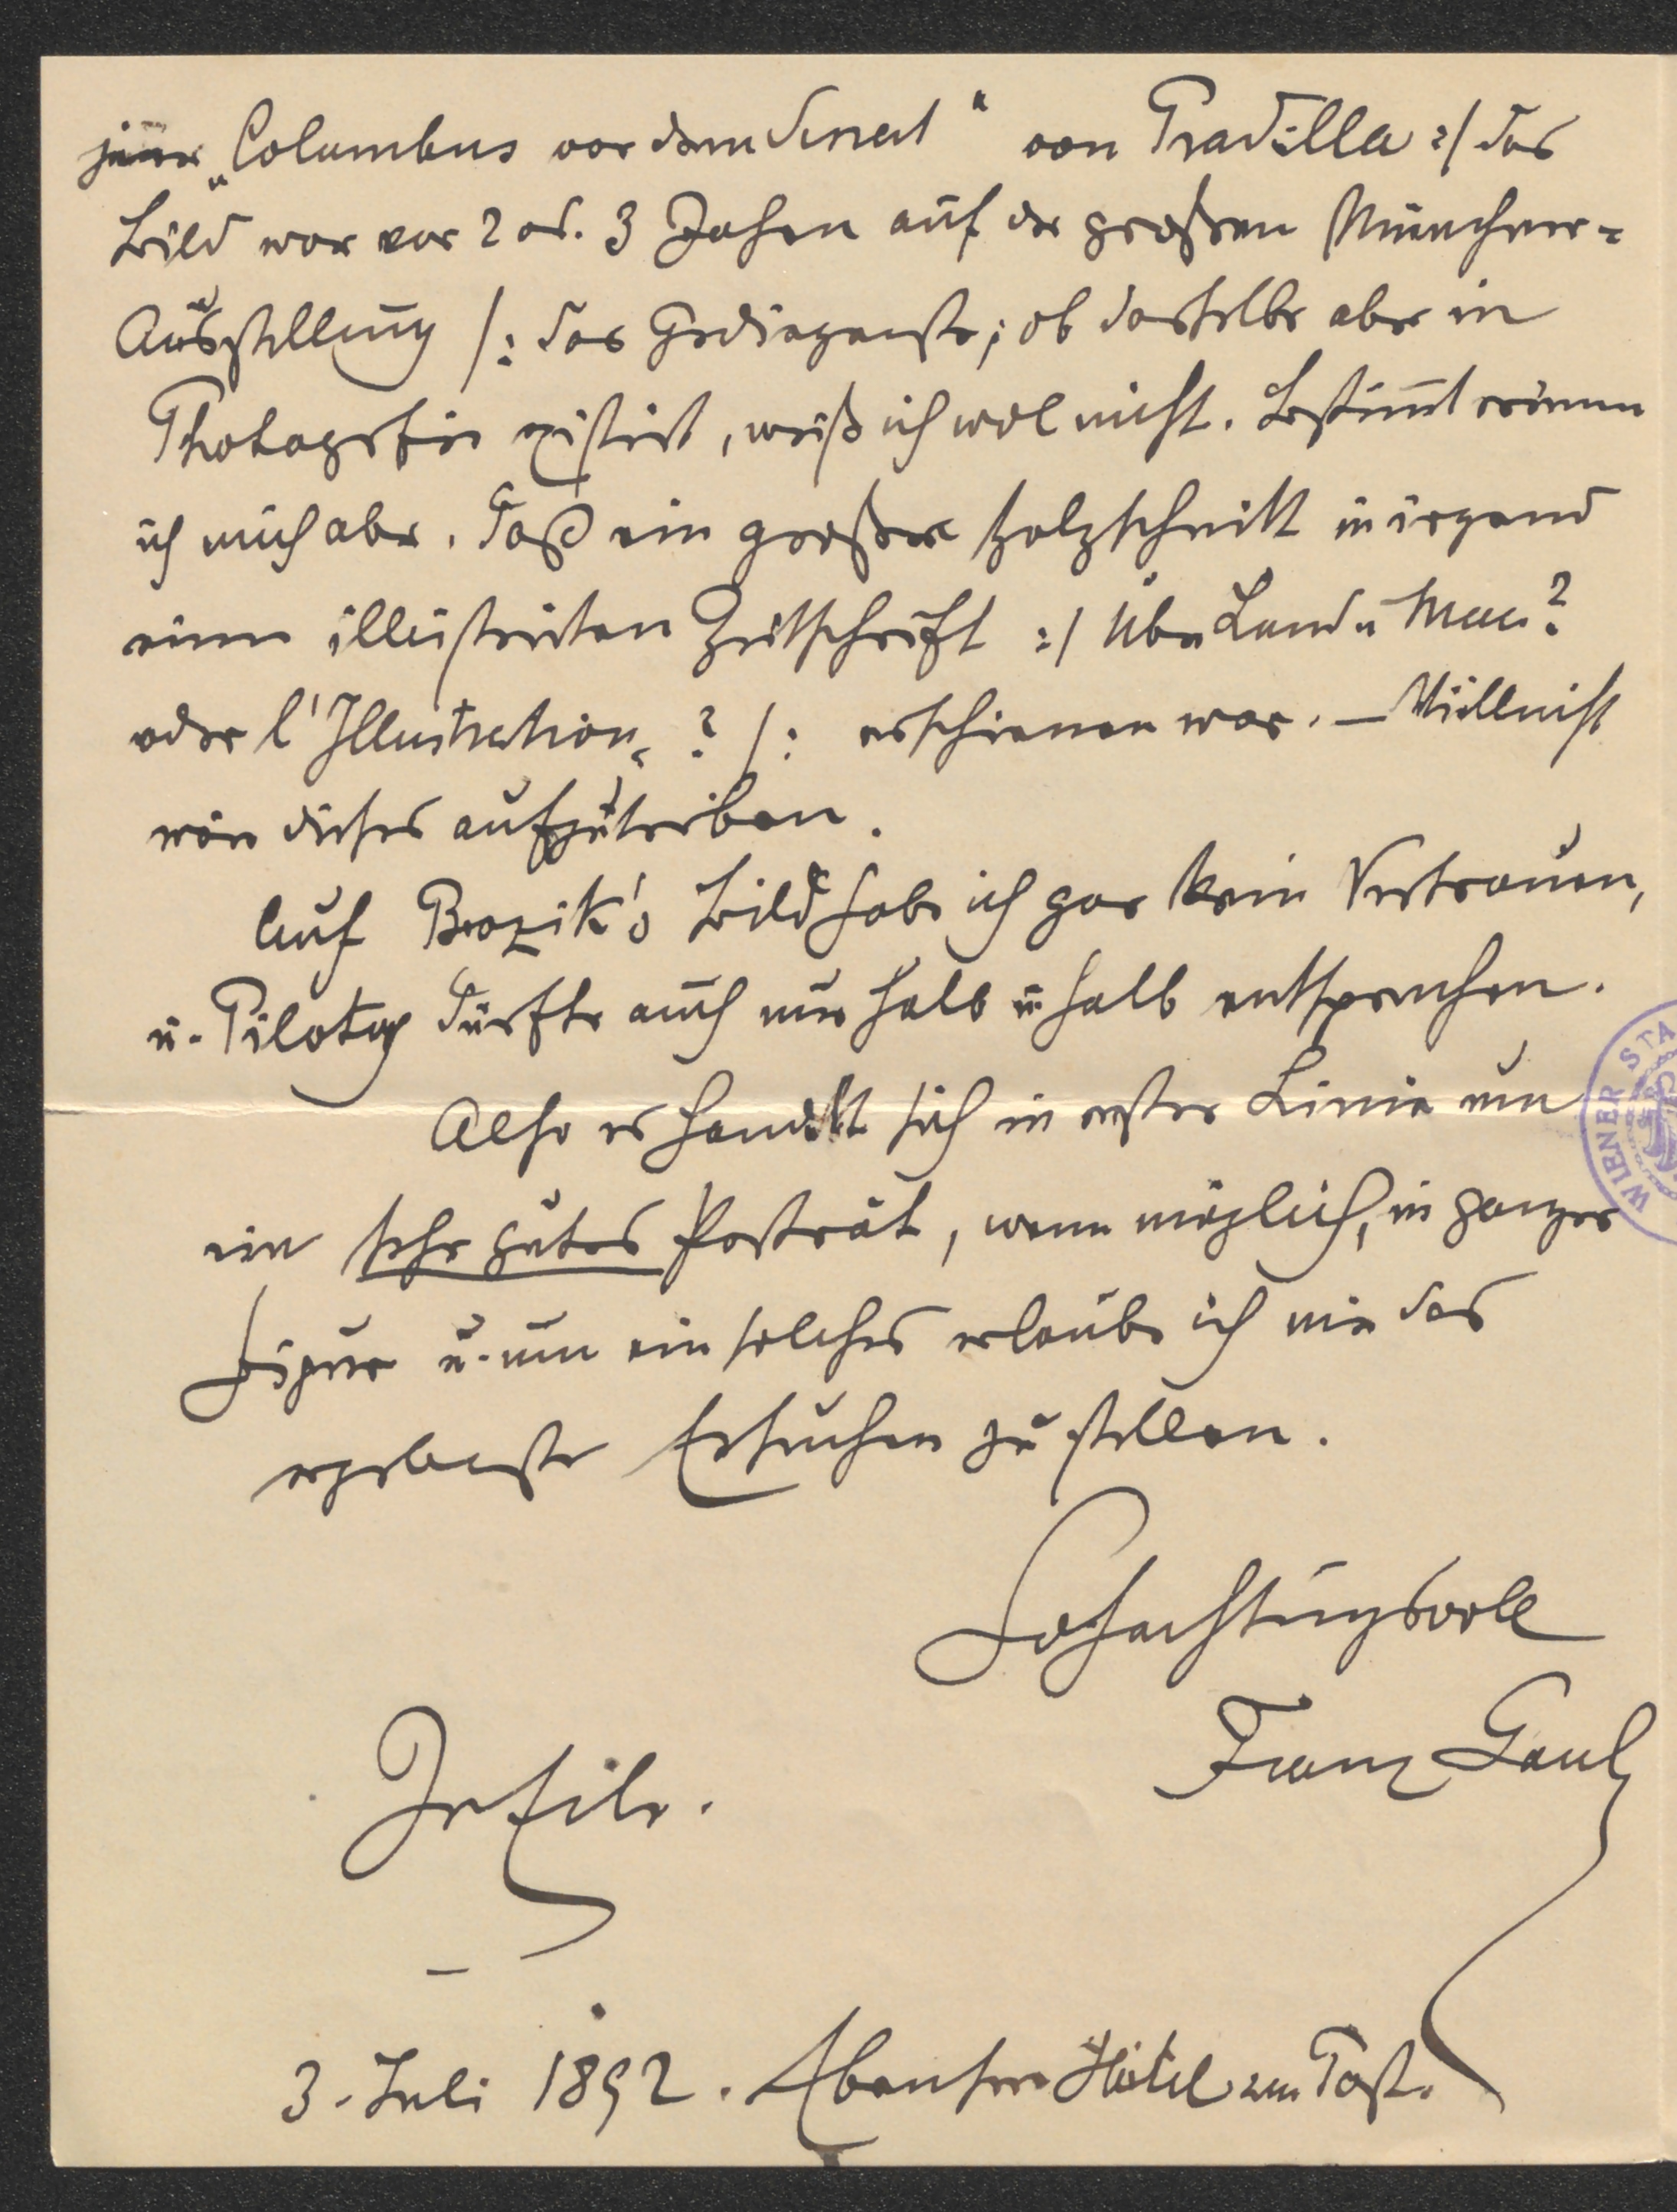 jener „Columbus vor dem Senat“ von Pradilla :/ das
Bild war vor 2 od. 3 Jahren auf der großen Münchner=
Ausstellung /: das Gediegenste; ob dasselbe aber in
Photografie existirt, weiß ich wol nicht. Bestimt erinnere
ich mich aber, daß ein großer Holzschnitt in irgend
einer illustrirten Zeitschrift :/ Über Land u Meer?
oder l'Illustration„ ? /: erschienen war. — Villeicht
wäre dieses aufzutreiben.
Auf Brozik's Bild habe ich gar kein Vertrauen,
u. Piloty dürfte auch nur halb u halb entsprechen.
Also es handelt sich in erster Linie um
ein sehr gutes Porträt, wenn möglich, in ganzer
Figur u. um ein solches erlaube ich mir das
ergebenste Ersuchen zu stellen.
Hochachtungsvoll
Franz Gaul
In Eile.
3. Juli 1892. Ebensee Hôtel zur Post.
WIENER STA